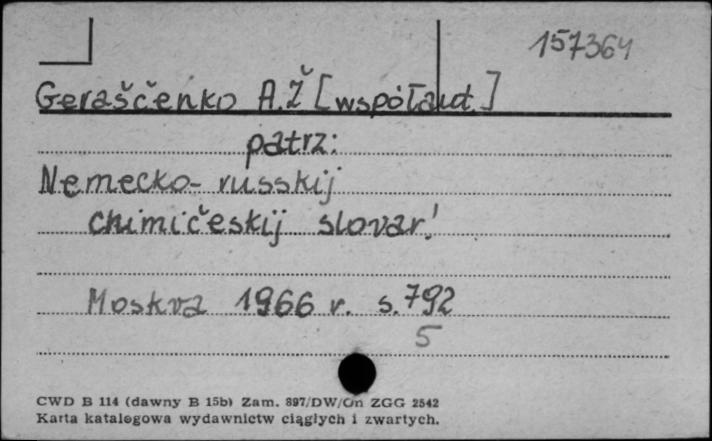 157364
Geraščenko A.Ž [współaut.]
patrz:
Nemecko-russkij
chimičeskij slovar'
Moskva 1966 r. s.792
5
CWD B 114 (dawny B 15b) Zam. 897/DW/On ZGG 2542
Karta katalogowa wydawnictw ciągłych i zwartych.